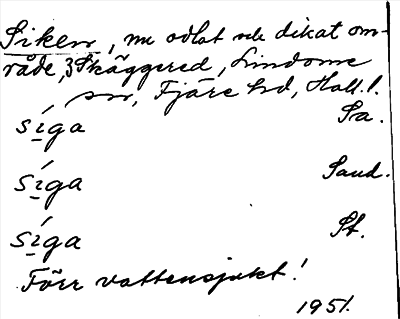 Siken, nu odlat och dikat om-
råde, 3 Skäggered, Lindome
sn, Fjäre hd, Hall.l.
síga Sa.
síga Sand.
síga St.
Förr vattensjukt!
1951.